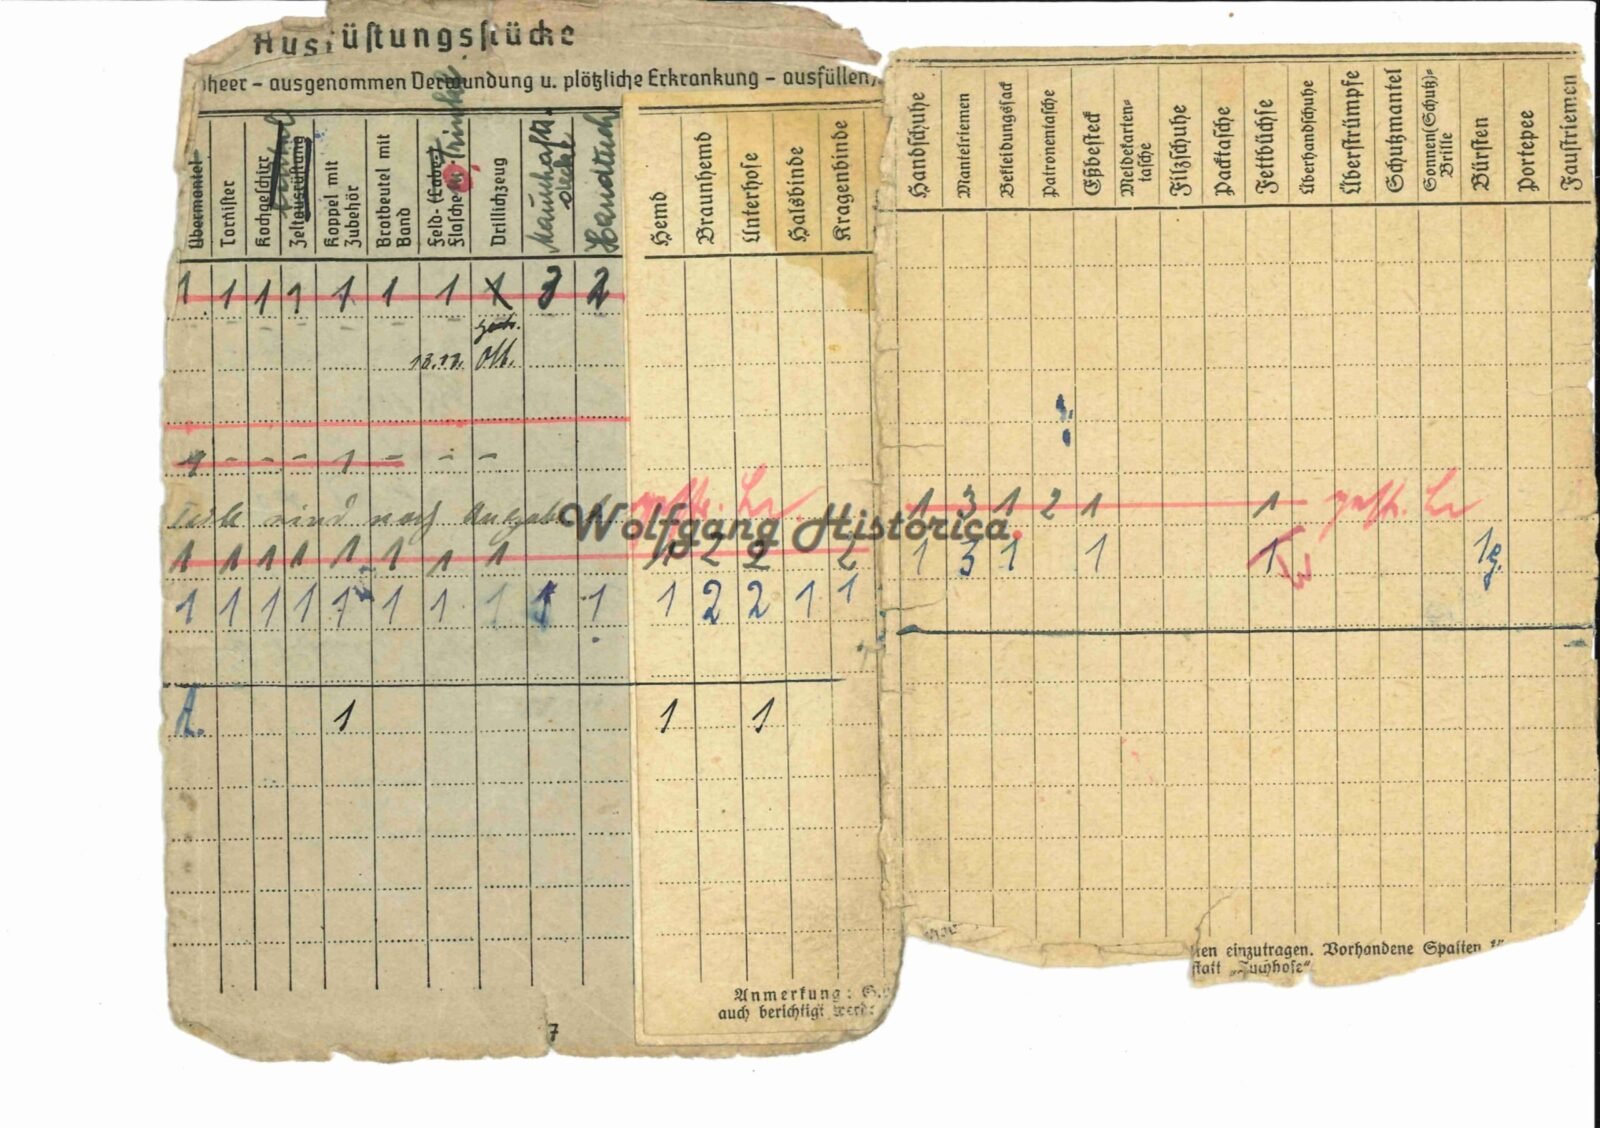 Ausrüstungsstücke
heer – ausgenommen Verwundung u. plötzliche Erkrankung – ausfüllen
Übermantel
Tornister
Kochgeschirr
Zeltausrüstung
Koppel mit Zubehör
Brotbeutel mit Band
Feld- (Labe-) Flasche
Drillichzeug
Mannhafts decke
Handtuch
Hemd
Braunhemd
Unterhose
Halsbinde
Kragenbinde
Handschuhe
Mantelriemen
Bekleidungssack
Patronentasche
Eßbesteck
Meldekarten-tasche
Filzschuhe
Packtasche
Fettbüchse
Überhandschuhe
Überstrümpfe
Schutzmantel
Sonnen(Schutz)-Brille
Bürsten
Portepee
Faustriemen
1 1 1 1 1 1 1 1 3 2
1 - - - 1 - - -
Teile sind nach Angabe
1 3 1 2 1 1
Wolfgang Historica.
1 1 1 1 1 1 1 1 1 2 2 2
1 3 1 1 1 1
1 1 1 1 1 1 1 1 1 1 1 2 2 1 1
1 1 1
Anmerkung:
auch berichtigt werd
ten einzutragen. Vorhandene Spalten
statt „Tuchhose“
7